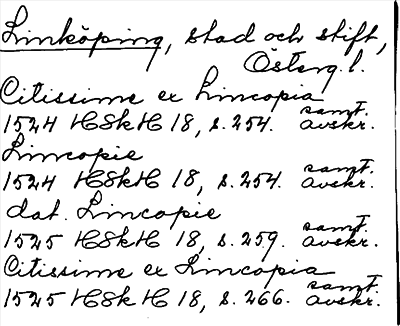 Linköping, stad och stift,
Österg.l.
Citissime ex Lincopia
1524 HSkH 18, s. 254. samt. avskr.
Lincopie
1524 HSkH 18, s. 254. samt. avskr.
dat. Lincopie
1525 HSkH 18, s. 259. samt. avskr.
Citissime ex Lincopia
1525 HSkH 18, s. 266. samt. avskr.